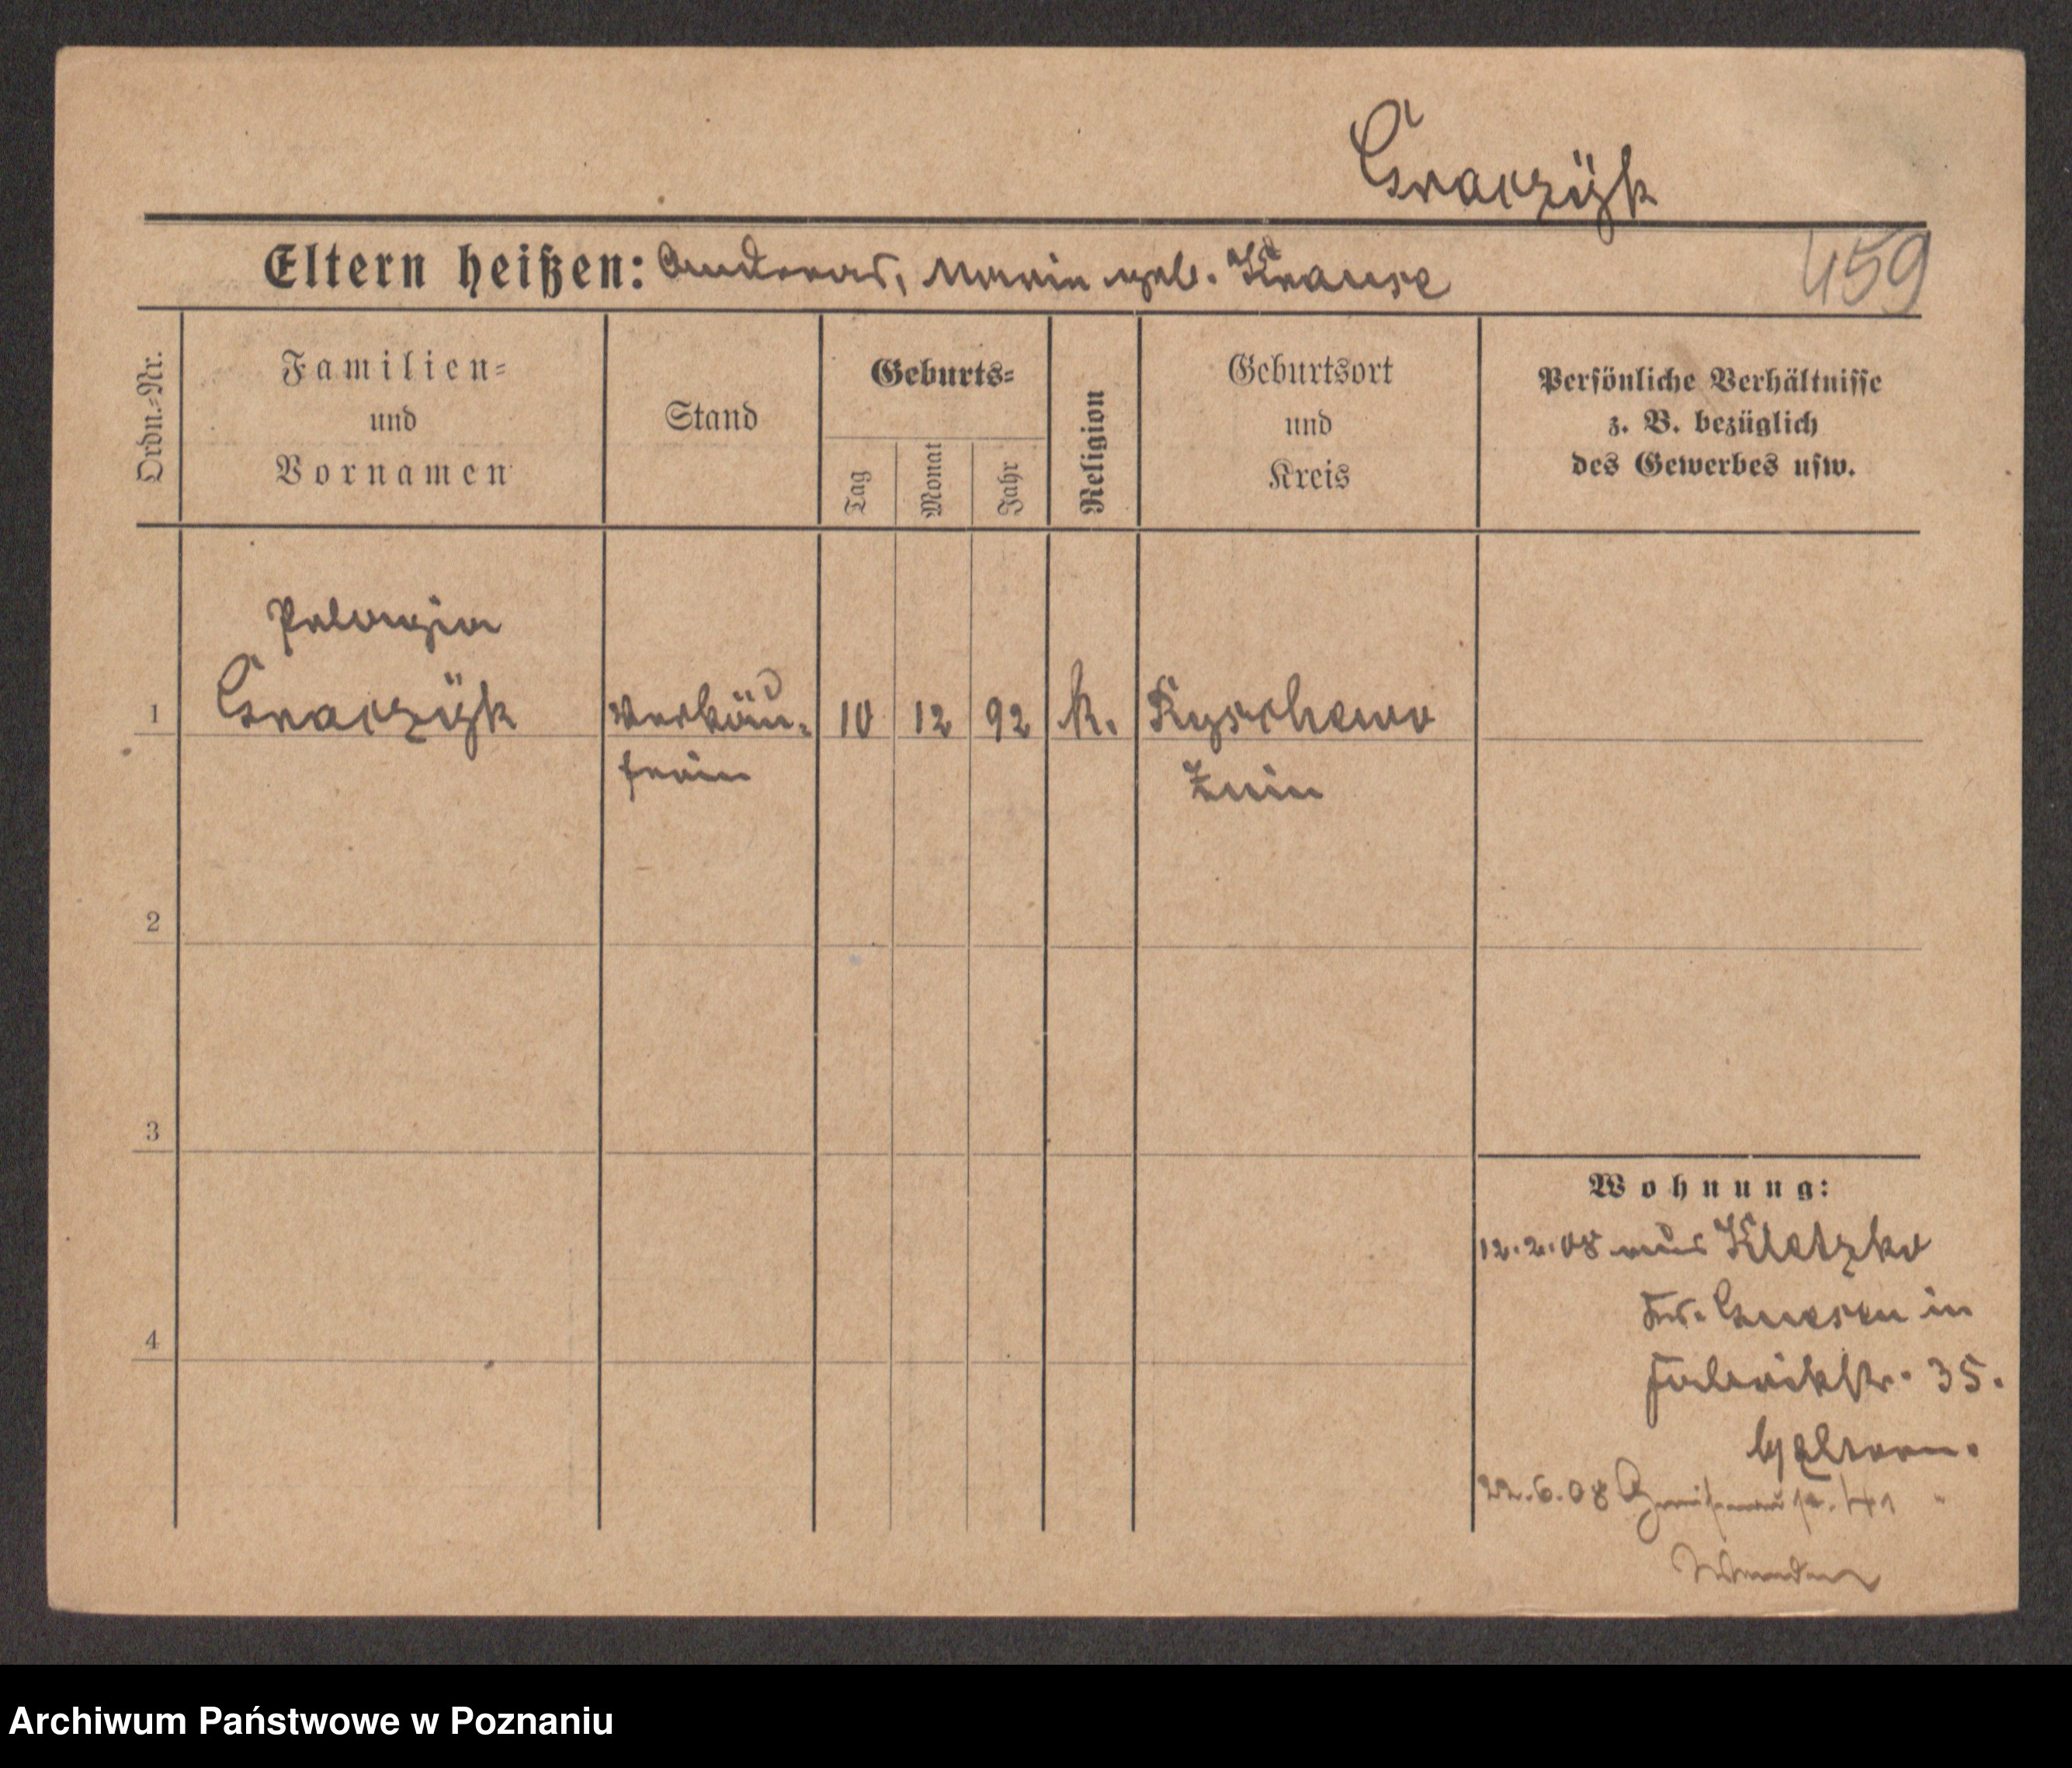 Graczÿk
Eltern heißen: Andreas, Maria geb. Krause
459
Ordn.-Nr.
Familien-
und
Vornamen
Stand
Geburts-
Tag
Monat
Jahr
Religion
Geburtsort
und
Kreis
Persönliche Verhältnisse
z. B. bezüglich
des Gewerbes usw.
Pelagia
1 Graczÿk Verkäu- 10 12 92 k. Ryschewo
ferin Znin
2
3
4
Wohnung:
12.2.08 aus Kletzko
Krs. Gnesen in
Fabrikstr. 35.
22.6.08 Gneisenaustr. 41 "
Wenden
Archiwum Państwowe w Poznaniu